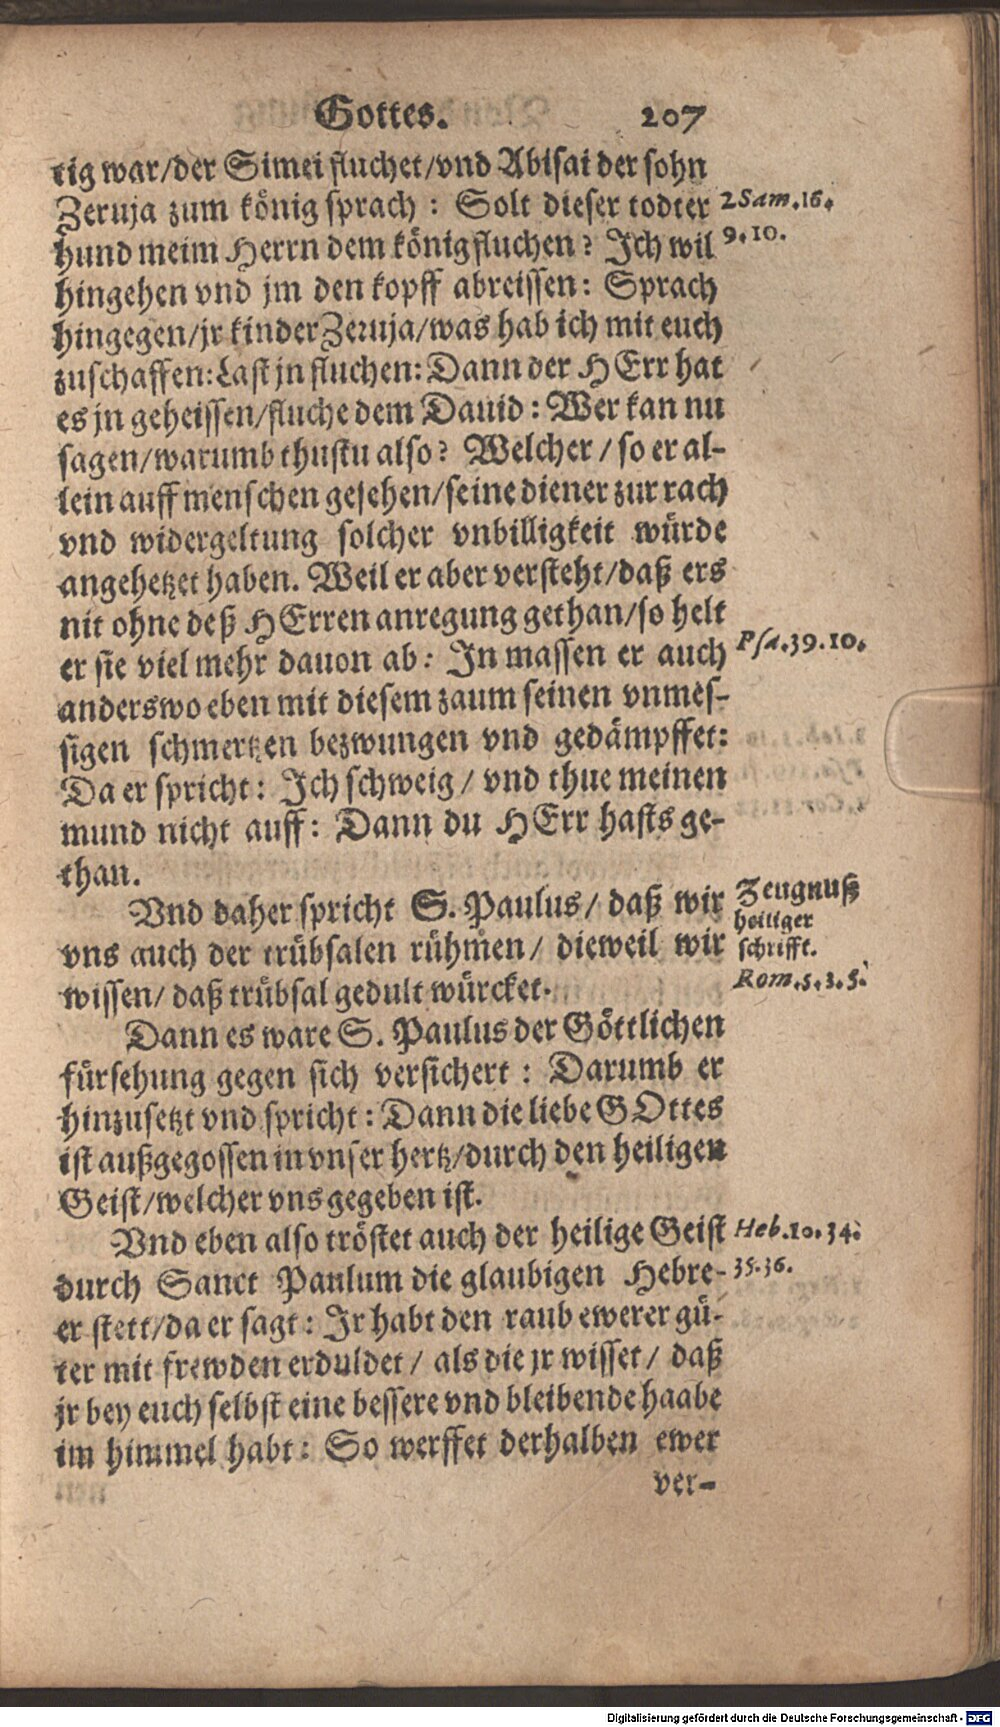 Gottes. 207
tig war/der Simei fluchet/vnd Abisai der sohn
Zeruja zum könig sprach : Solt dieser todter
2 Sam. 16.
hund meim Herrn dem könig fluchen? Ich wil
9. 10.
hingehen vnd jm den kopff abreissen: Sprach
hingegen/jr kinder Zeruja/was hab ich mit euch
zuschaffen: Last jn fluchen: Dann der HErr hat
es jn geheissen/fluche dem Dauid : Wer kan nu
sagen/warumb thustu also? Welcher / so er al-
lein auff menschen gesehen/seine diener zur rach
vnd widergeltung solcher vnbilligkeit würde
angehetzet haben. Weil er aber versteht/daß ers
nit ohne deß HErren anregung gethan/so helt
er sie viel mehr dauon ab: In massen er auch
Psa. 39. 10.
anderswo eben mit diesem zaum seinen vnmes-
sigen schmertzen bezwungen vnd gedämpffet:
Da er spricht: Ich schweig / vnd thue meinen
mund nicht auff: Dann du HErr hasts ge-
than.
Vnd daher spricht S. Paulus / daß wir
Zeugnuß
heiliger
vns auch der trübsalen rühmen / dieweil wir
schrifft.
wissen/ daß trübsal gedult würcket.
Rom. 5. 3. 5.
Dann es ware S. Paulus der Göttlichen
fürsehung gegen sich versichert : Darumb er
hinzusetzt vnd spricht: Dann die liebe GOttes
ist außgegossen in vnser hertz/durch den heiligen
Geist/welcher vns gegeben ist.
Vnd eben also tröstet auch der heilige Geist
Heb. 10. 34.
durch Sanct Paulum die glaubigen Hebre-
35. 36.
er stett/da er sagt : Ir habt den raub ewerer gü-
ter mit frewden erduldet / als die jr wisset / daß
jr bey euch selbst eine bessere vnd bleibende haabe
im himmel habt: So werffet derhalben ewer
ver-
Digitalisierung gefördert durch die Deutsche Forschungsgemeinschaft - DFG